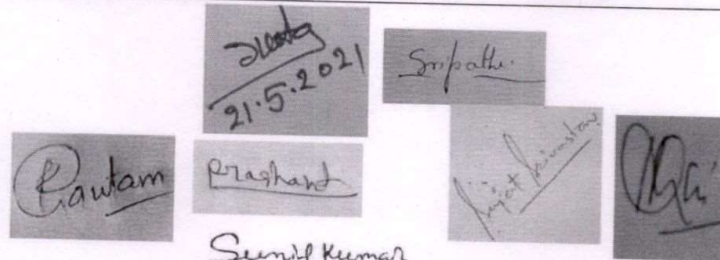 21.5.2021
Sripathi
Gautam
Prashant
Sujat Srivastav
Rai
Sunil Kumar